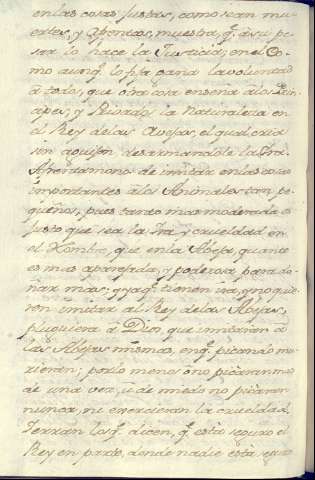 en las cosas justas, como sean mu-
ertes, y Afrentas, muestra, q̃ a su pe-
sar lo hace la Justicia; en el Co-
mo aunq̃ lo fisa gana la voluntad
a todos, que otra cosa enseña a los Prin-
cipes, y Privados la Naturaleza en
el Rey de las Avejas, el qual cria
sin aguijon desarmandole la Ira.
Afrentamonos de imitar en las cosas
importantes a los Animales tan pe-
queños, pues tanto mas moderada es
justo que sea la Ira, y crueldad en
el Hombre, que en la Abeja, quanto
es mas aparejada, y poderosa para da-
ñar mas; y ya q̃ tienen ira, y no quie-
ren imitar al Rey de las Abejas,
pluguiera a Dios, que imitaran a
las Abejas mismas, en q̃ picando mo-
rieran; por lo menos o picaran mas
de una vez, u de miedo no picaran
nunca, ni exercieran la crueldad.
Ierran los q̃ dicen, q̃ està seguro el
Rey en parte, donde nadie està seguro